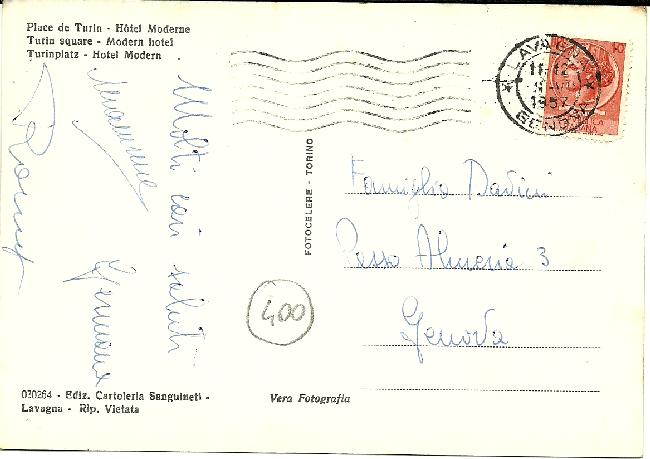 Place de Turin - Hôtel Moderne
Turin square - Modern hotel
Turinplatz - Hotel Modern
Molti cari saluti
Germana
Famiglia
Passo 3
Genova
400
FOTOCELERE - TORINO
LAVAGNA
11-12
1957
GENOVA
030264 - Ediz. Cartoleria Sanguineti -
Lavagna - Rip. Vietata
Vera Fotografia